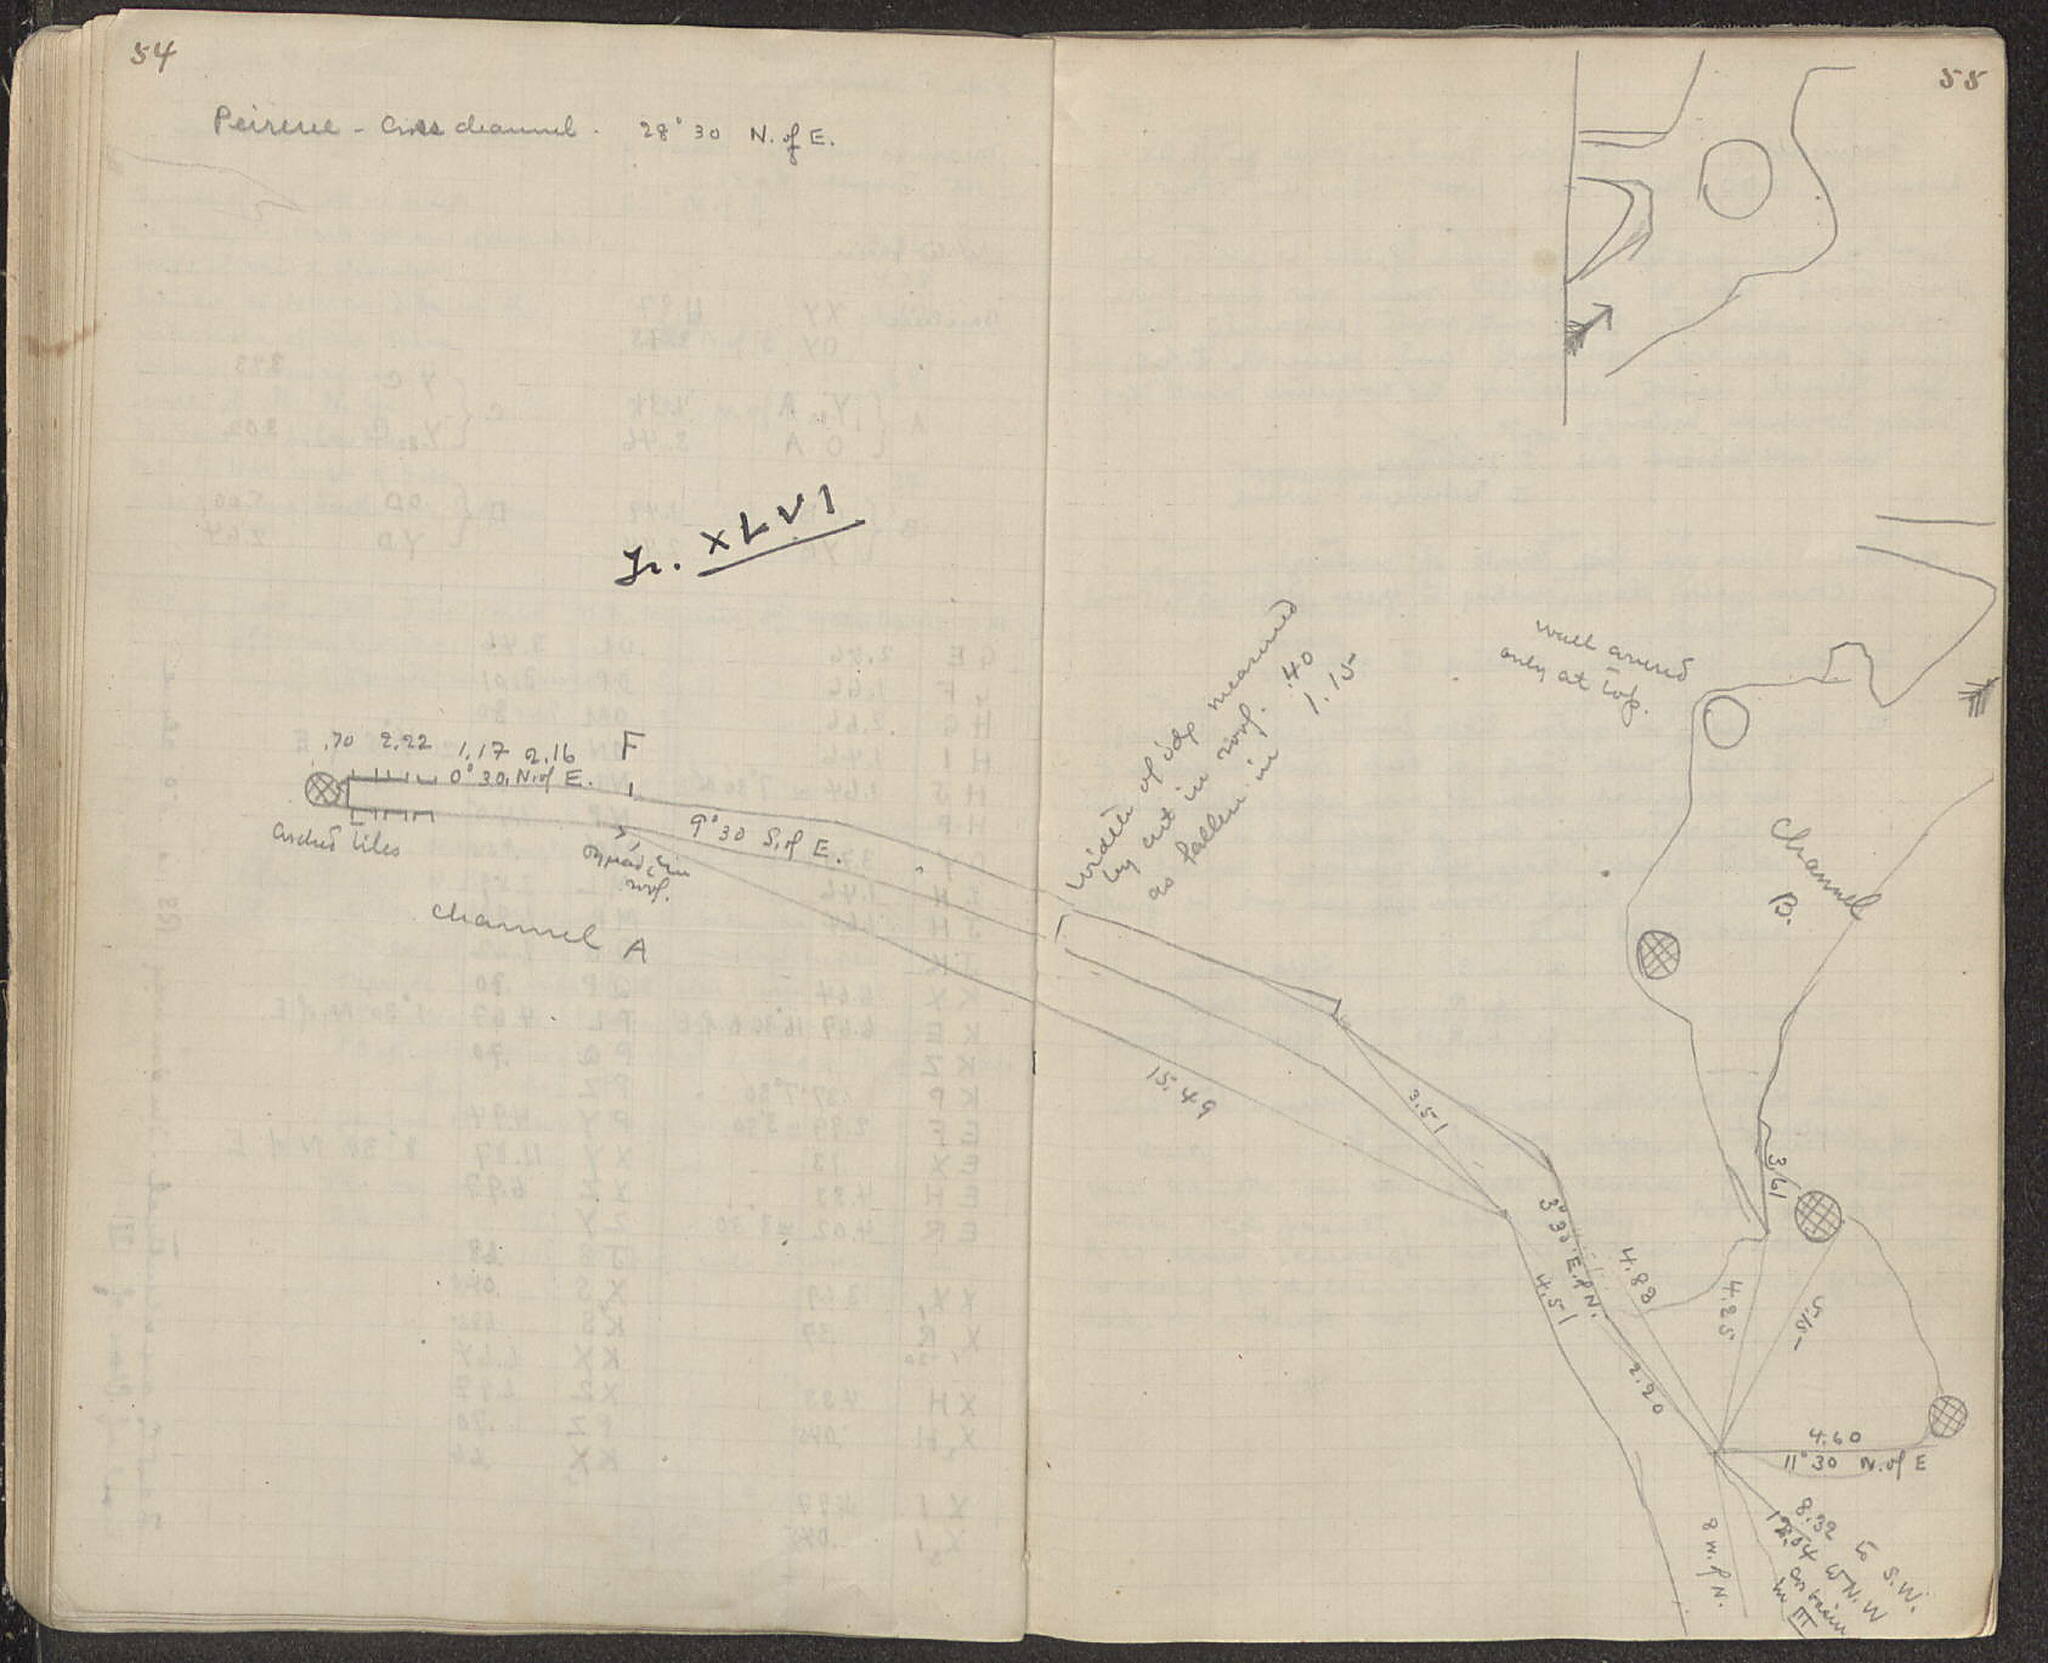 54
Peirene - Cross channel. 28°30 N. of E.
Tr. XLVI
.70 2.22 1.17 2.16 F
0°30, N. of E.
9°30 S. of E.
arched tiles
in
roof.
Channel A
55
width of top measured
by cut in roof. .40
as fallen in 1.15
well
only at top.
Channel
B.
15.49
3.51
3.61
3°30' E. of N.
4.88
4.51
4.25
5.15
2.20
4.60
11°30 N. of E
8 W. of N.
8.32 to S.W.
W N.W
in III